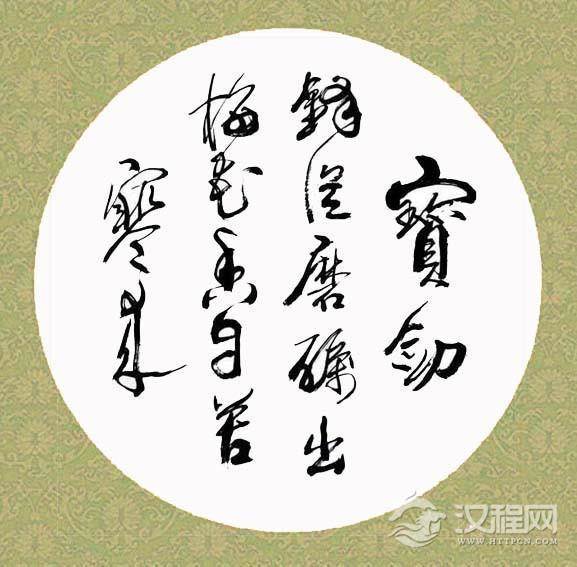 寶劒
鋒從磨礪出
梅花香自苦
寒来
汉程网
WWW.HTTPCN.COM